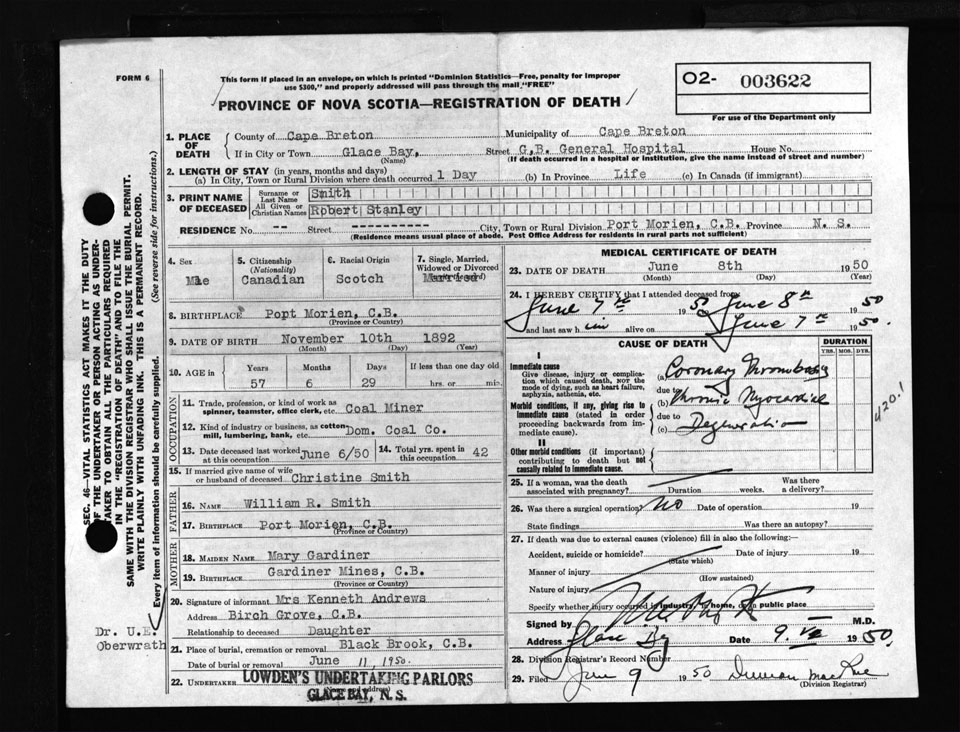 FORM 6
This form if placed in an envelope, on which is printed "Dominion Statistics—Free, penalty for improper
use $300," and properly addressed will pass through the mail "FREE"
PROVINCE OF NOVA SCOTIA—REGISTRATION OF DEATH
O2- 003622
For use of the Department only
SEC. 46—VITAL STATISTICS ACT MAKES IT THE DUTY
OF THE UNDERTAKER OR PERSON ACTING AS UNDER-
TAKER TO OBTAIN ALL THE PARTICULARS REQUIRED
IN THE "REGISTRATION OF DEATH" AND TO FILE THE
SAME WITH THE DIVISION REGISTRAR WHO SHALL ISSUE THE BURIAL PERMIT.
WRITE PLAINLY WITH UNFADING INK. THIS IS A PERMANENT RECORD.
Every item of information should be carefully supplied. (See reverse side for instructions.)
1. PLACE OF DEATH
County of Cape Breton Municipality of Cape Breton
If in City or Town Glace Bay, Street G.B. General Hospital House No.
(Name) (If death occurred in a hospital or institution, give the name instead of street and number)
2. LENGTH OF STAY (in years, months and days)
(a) In City, Town or Rural Division where death occurred 1 Day (b) In Province Life (c) In Canada (if immigrant)
3. PRINT NAME OF DECEASED
Surname or Last Name Smith
All Given or Christian Names Robert Stanley
RESIDENCE No. -- Street ------------ City, Town or Rural Division Port Morien, C.B. Province N. S.
(Residence means usual place of abode. Post Office Address for residents in rural parts not sufficient)
4. Sex
Mle
5. Citizenship (Nationality)
Canadian
6. Racial Origin
Scotch
7. Single, Married, Widowed or Divorced
Married
8. BIRTHPLACE Popt Morien, C.B.
(Province or Country)
9. DATE OF BIRTH November 10th 1892
(Month) (Day) (Year)
10. AGE in Years Months Days If less than one day old
57 6 29 hrs. or min.
OCCUPATION
11. Trade, profession, or kind of work as
spinner, teamster, office clerk, etc. Coal Miner
12. Kind of industry or business, as cotton-
mill, lumbering, bank, etc. Dom. Coal Co.
13. Date deceased last worked at this occupation June 6/50 14. Total yrs. spent in this occupation 42
15. If married give name of wife
or husband of deceased Christine Smith
FATHER
16. Name William R. Smith
17. Birthplace Port Morien, C.B.
(Province or Country)
MOTHER
18. Maiden Name Mary Gardiner
19. Birthplace Gardiner Mines, C.B.
(Province or Country)
20. Signature of informant Mrs Kenneth Andrews
Address Birch Grove, C.B.
Relationship to deceased Daughter
21. Place of burial, cremation or removal Black Brook, C.B.
Date of burial or removal June 11, 1950.
22. Undertaker LOWDEN'S UNDERTAKING PARLORS
GLACE BAY, N. S.
Dr. U.E.
Oberwrath
MEDICAL CERTIFICATE OF DEATH
23. DATE OF DEATH June 8th 1950
(Month) (Day) (Year)
24. I HEREBY CERTIFY that I attended deceased from
June 7th 1950 June 8th 50
and last saw him alive on June 7th 1950.
CAUSE OF DEATH
DURATION
YRS. MOS. DYS.
I
Immediate cause
Give disease, injury or complica-
tion which caused death, NOT the
mode of dying, such as heart failure,
asphyxia, asthenia, etc.
(a) Coronary Thrombosis
due to
(b) Chronic Myocardial
Morbid conditions, if any, giving rise to
immediate cause (stated in order
proceeding backwards from im-
mediate cause).
due to
(c) Degeneration
II
Other morbid conditions (if important)
contributing to death but not
causally related to immediate cause.
420.1
25. If a woman, was the death
associated with pregnancy? Duration weeks. Was there a delivery?
26. Was there a surgical operation? No Date of operation 19
State findings Was there an autopsy?
27. If death was due to external causes (violence) fill in also the following:
Accident, suicide or homicide? Date of injury 19
(State which)
Manner of injury
(How sustained)
Nature of injury
Specify whether injury occurred in industry, in home, or in public place
Signed by M.D.
Address Glace Bay Date 9. 1950
28. Division Registrar's Record Number
29. Filed June 9 1950
(Division Registrar)